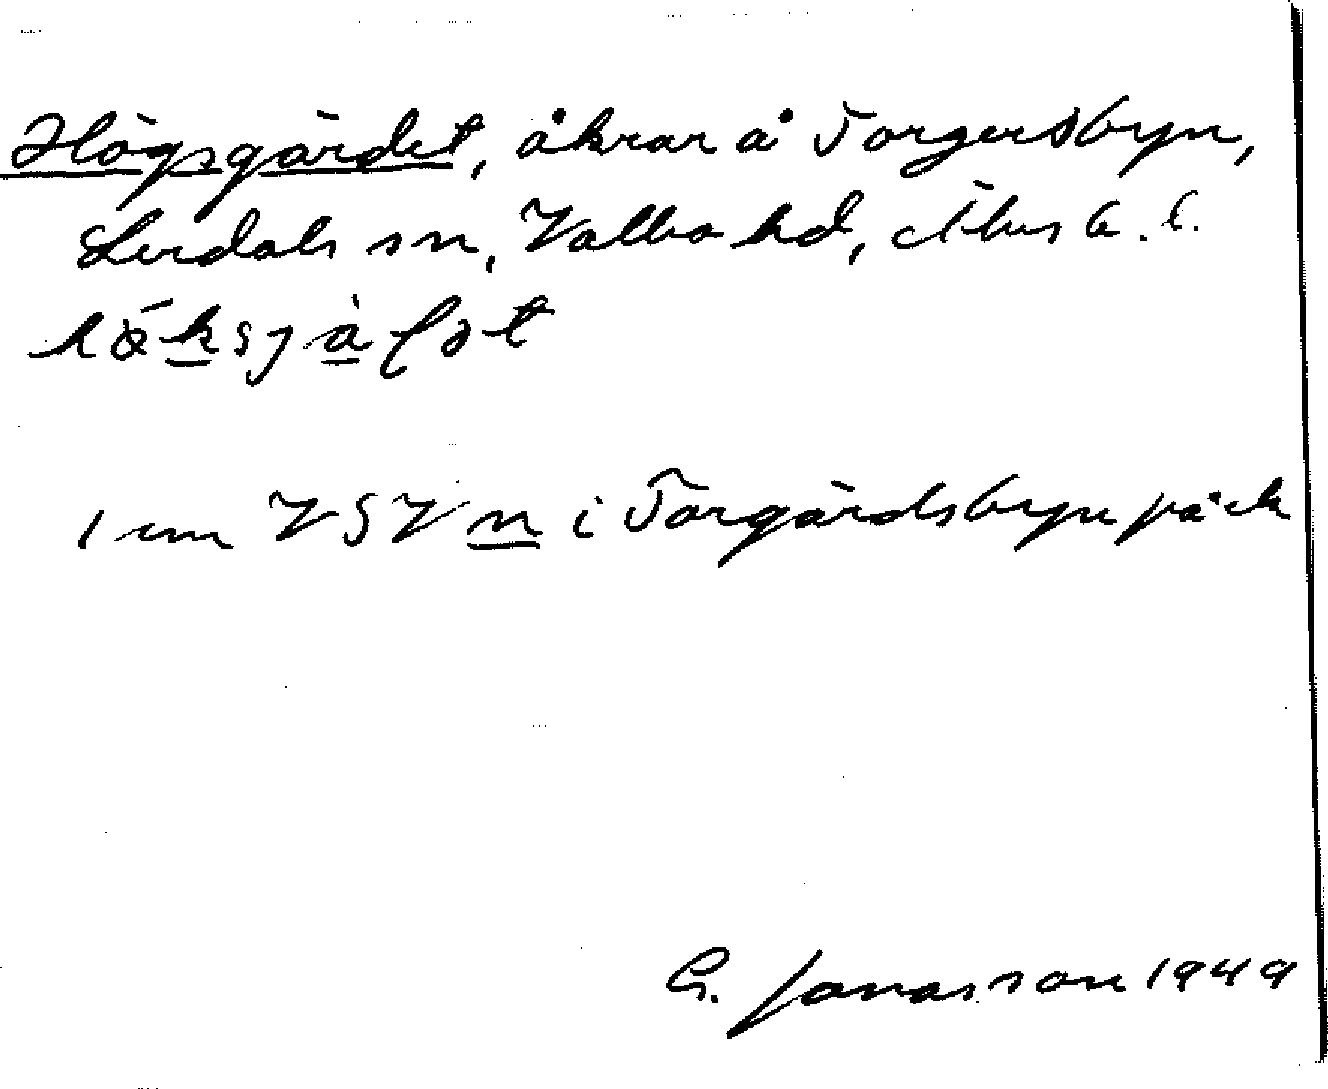 Högsgärdet, åkrar å Torgersbyn,
Lerdals sn, Valbo hd, Älvsb. l.
1 cm VSV n i Torgärdsbyn på ek
G. Jonasson 1949